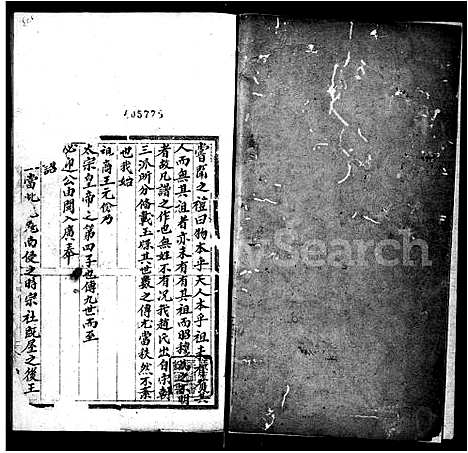 嘗聞之禮曰物本乎天人本乎祖未有無其
人而無其祖者亦未有有其祖而昭穆
者故凡譜之作也無姓不有况我趙氏出自宋朝
三派所分俻載王牒其世數之傳尤當秩然不紊
也我始
祖商王元份乃
太宗皇帝之第四子也傳九世而至
必迎公由閩入廣奉
詔
南使之時宗社既屋之後王
105775
Search